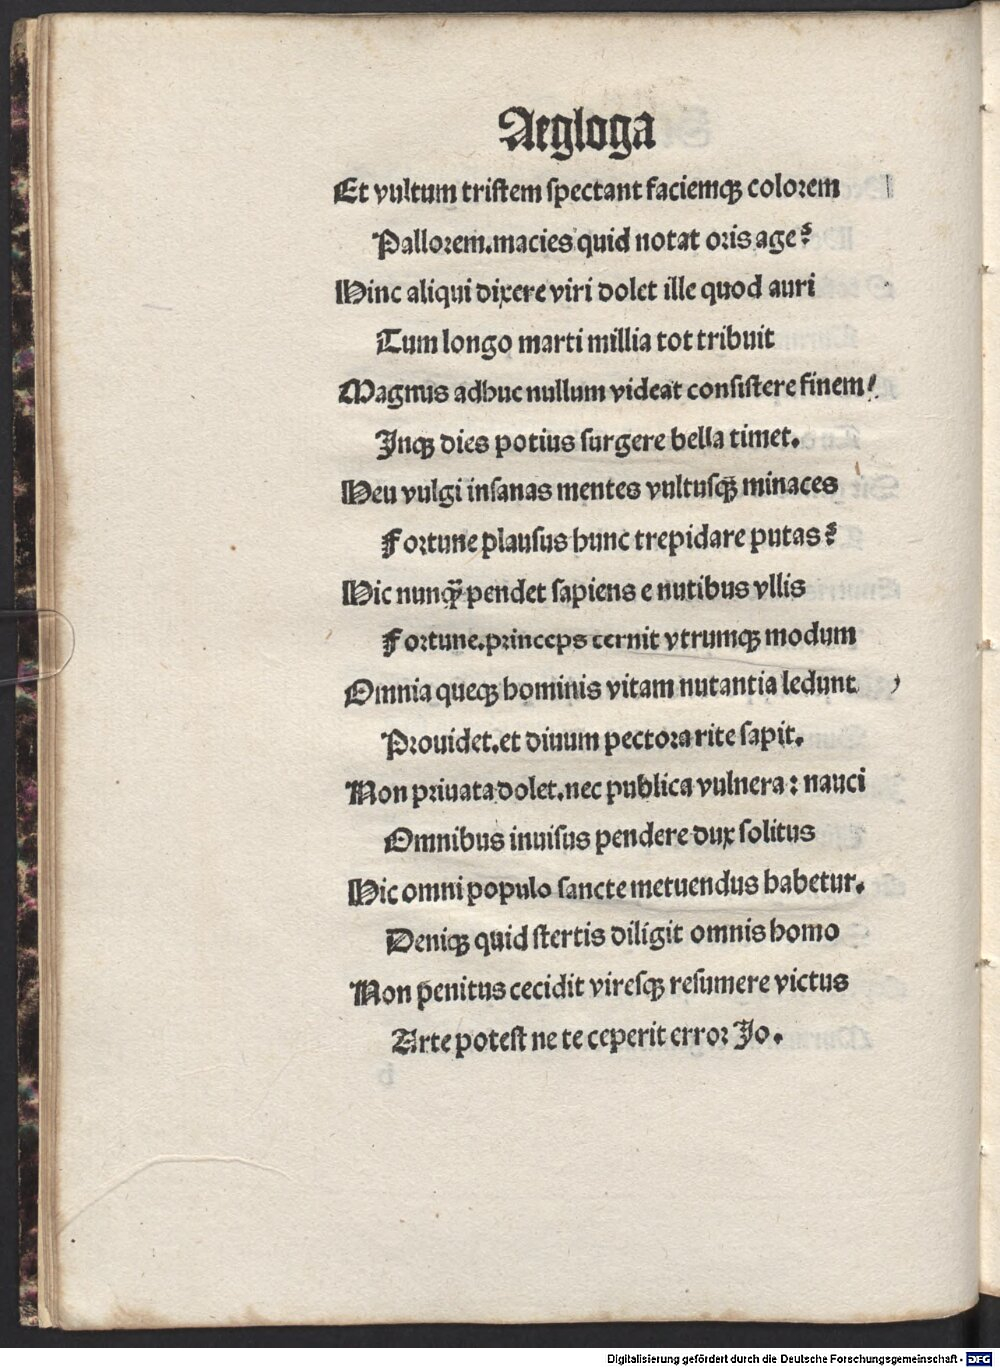 Aegloga
Et vultum tristem spectant faciemqꝫ colorem
Pallorem.macies quid notat oris age?
Hinc aliqui dixere viri dolet ille quod auri
Tum longo marti millia tot tribuit
Magnus adhuc nullum videat consistere finem/
Inqꝫ dies potius surgere bella timet.
Heu vulgi insanas mentes vultusqꝫ minaces
Fortune plausus hunc trepidare putas?
Hic nunqꝫ̃ pendet sapiens e nutibus vllis
Fortune.princeps cernit vtrumqꝫ modum
Omnia queqꝫ hominis vitam nutantia ledunt ,
Prouidet.et diuum pectora rite sapit.
Non priuata dolet.nec publica vulnera: nauci
Omnibus inuisus pendere dux solitus
Hic omni populo sancte metuendus habetur.
Deniqꝫ quid stertis diligit omnis homo
Non p̄enitus cecidit viresqꝫ resumere victus
Arte potest ne te ceperit error Jo.
Digitalisierung gefördert durch die Deutsche Forschungsgemeinschaft - DFG